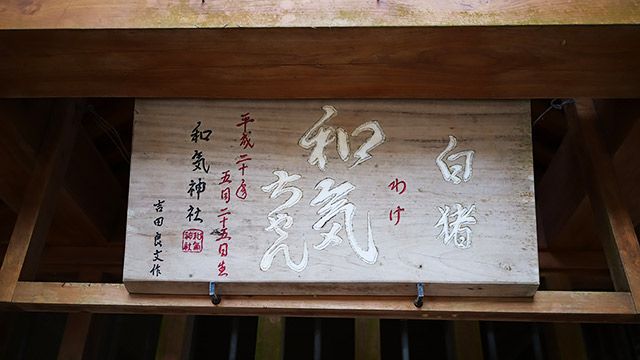 白猪
わけ
和気
ちゃん
平成二十年
五月二十五日生
和気神社
吉田良文作